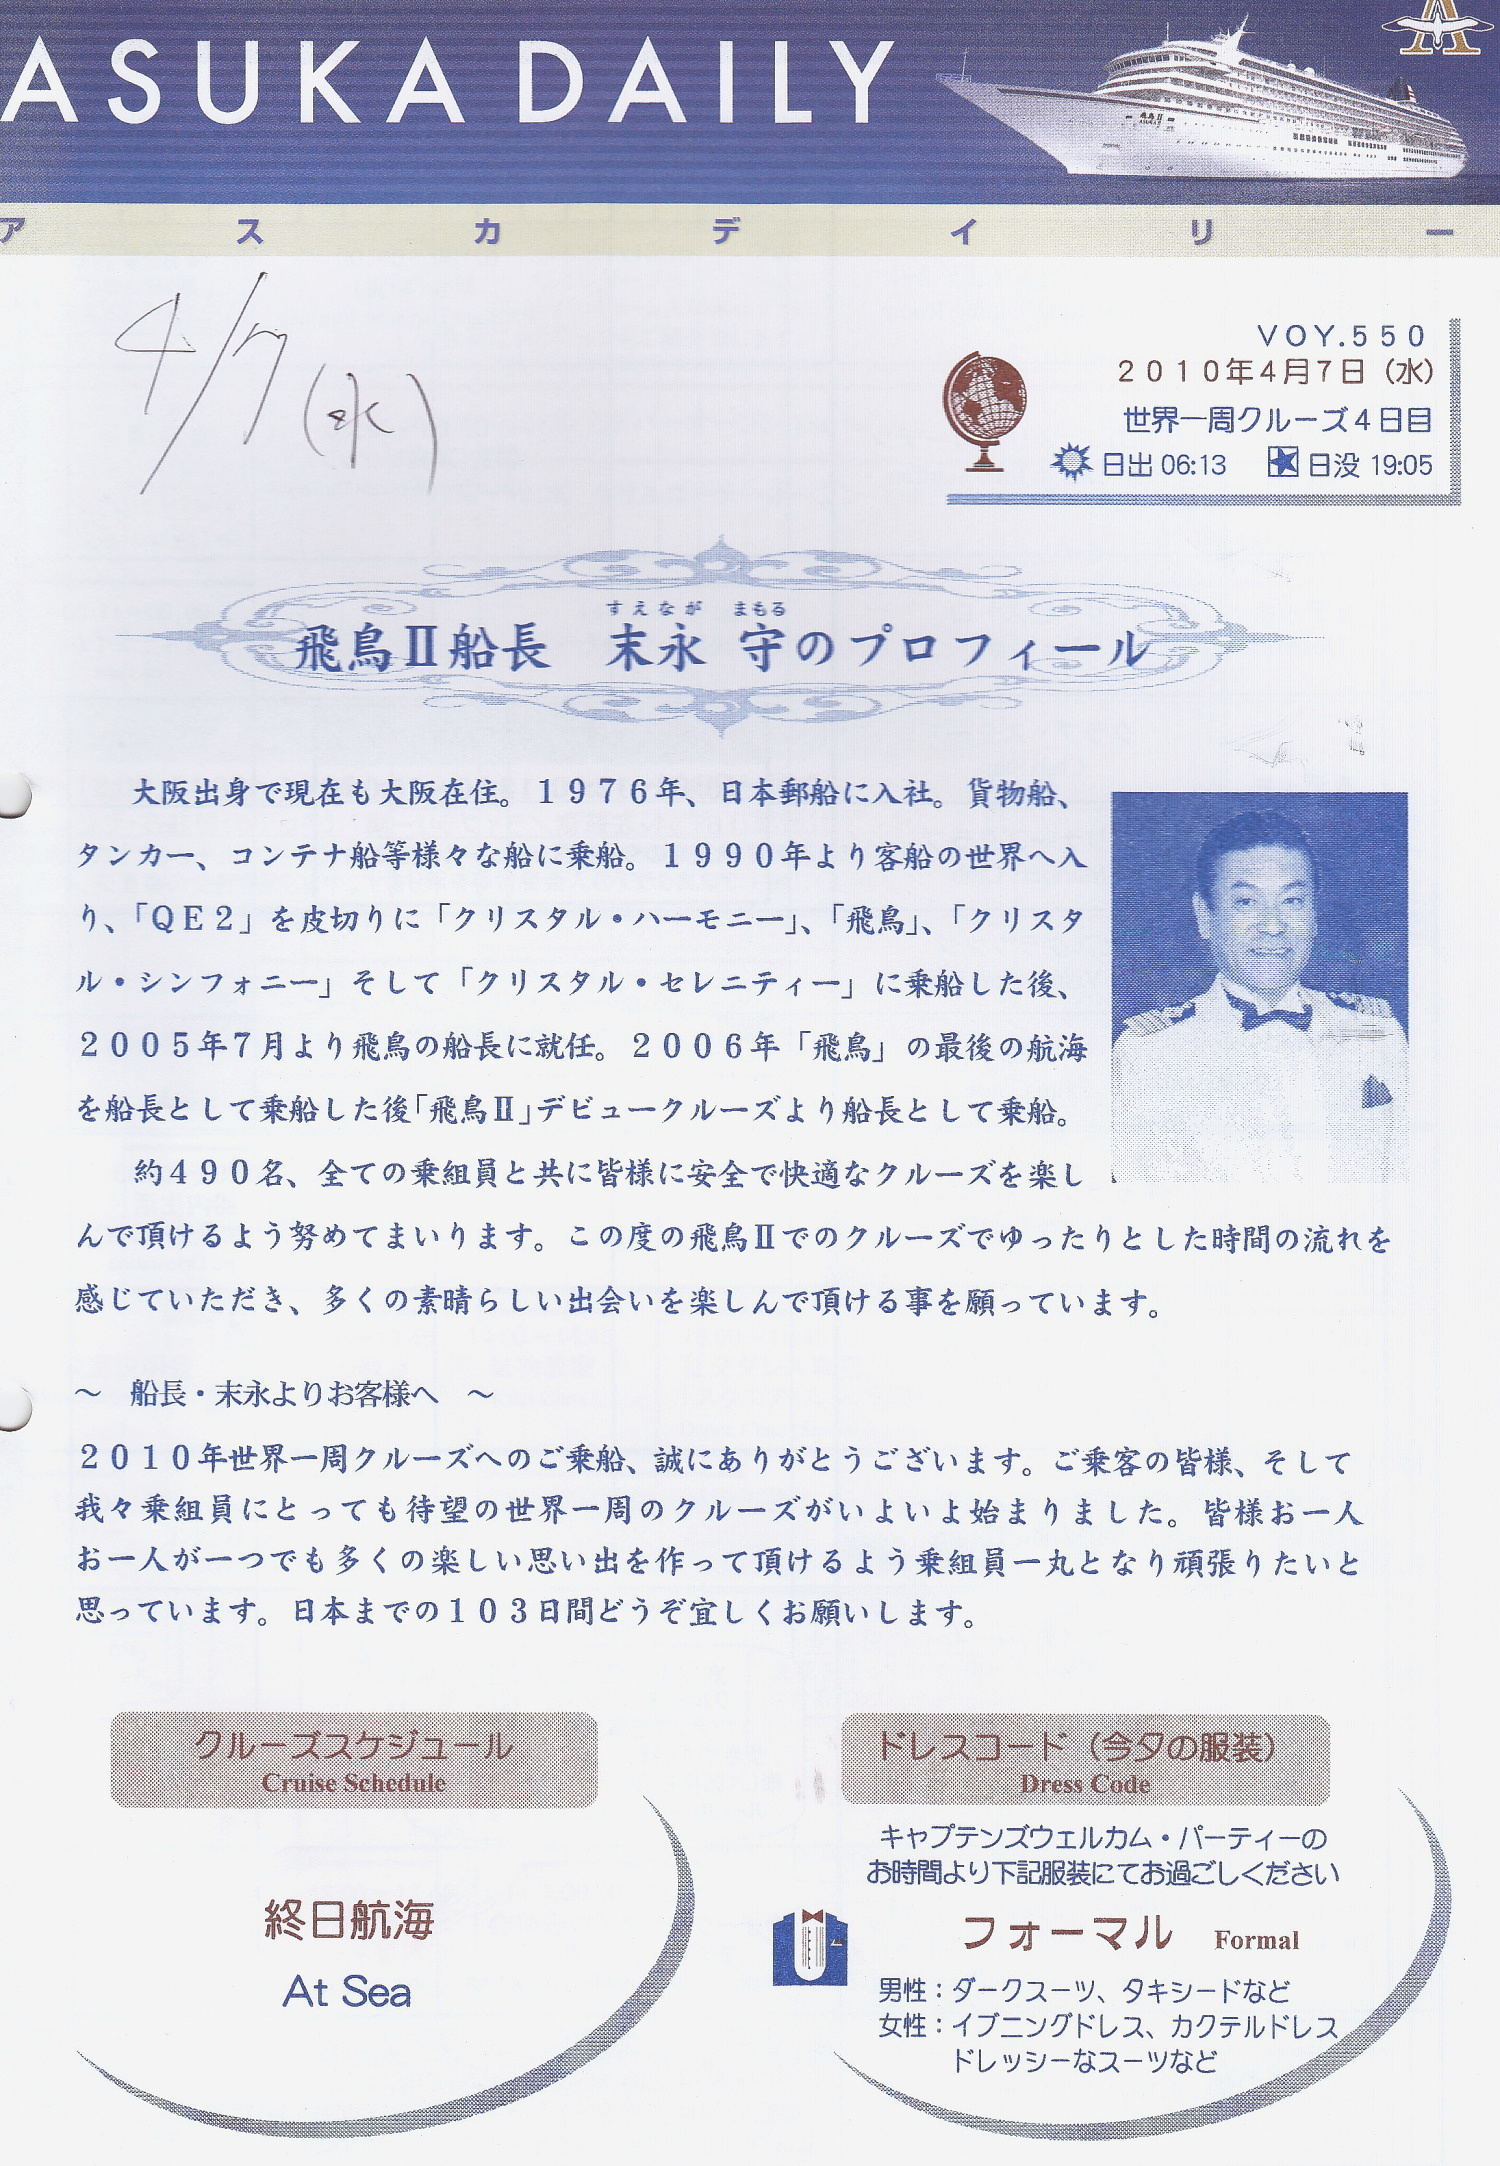 ASUKA DAILY
飛鳥Ⅱ
ASUKA Ⅱ
アスカデイリー
4/7(水)
VOY.550
2010年4月7日(水)
世界一周クルーズ4日目
日出 06:13 日没 19:05
すえなが まもる
飛鳥Ⅱ船長 末永 守のプロフィール
大阪出身で現在も大阪在住。1976年、日本郵船に入社。貨物船、
タンカー、コンテナ船等様々な船に乗船。1990年より客船の世界へ入
り、「QE2」を皮切りに「クリスタル・ハーモニー」、「飛鳥」、「クリスタ
ル・シンフォニー」そして「クリスタル・セレニティー」に乗船した後、
2005年7月より飛鳥の船長に就任。2006年「飛鳥」の最後の航海
を船長として乗船した後「飛鳥Ⅱ」デビュークルーズより船長として乗船。
約490名、全ての乗組員と共に皆様に安全で快適なクルーズを楽し
んで頂けるよう努めてまいります。この度の飛鳥Ⅱでのクルーズでゆったりとした時間の流れを
感じていただき、多くの素晴らしい出会いを楽しんで頂ける事を願っています。
～ 船長・末永よりお客様へ ～
2010年世界一周クルーズへのご乗船、誠にありがとうございます。ご乗客の皆様、そして
我々乗組員にとっても待望の世界一周のクルーズがいよいよ始まりました。皆様お一人
お一人が一つでも多くの楽しい思い出を作って頂けるよう乗組員一丸となり頑張りたいと
思っています。日本までの103日間どうぞ宜しくお願いします。
クルーズスケジュール
Cruise Schedule
終日航海
At Sea
ドレスコード(今夕の服装)
Dress Code
キャプテンズウェルカム・パーティーの
お時間より下記服装にてお過ごしください
フォーマル Formal
男性：ダークスーツ、タキシードなど
女性：イブニングドレス、カクテルドレス
ドレッシーなスーツなど